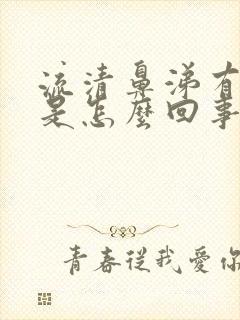 流清鼻涕有
是怎麼回事
青春從我愛你